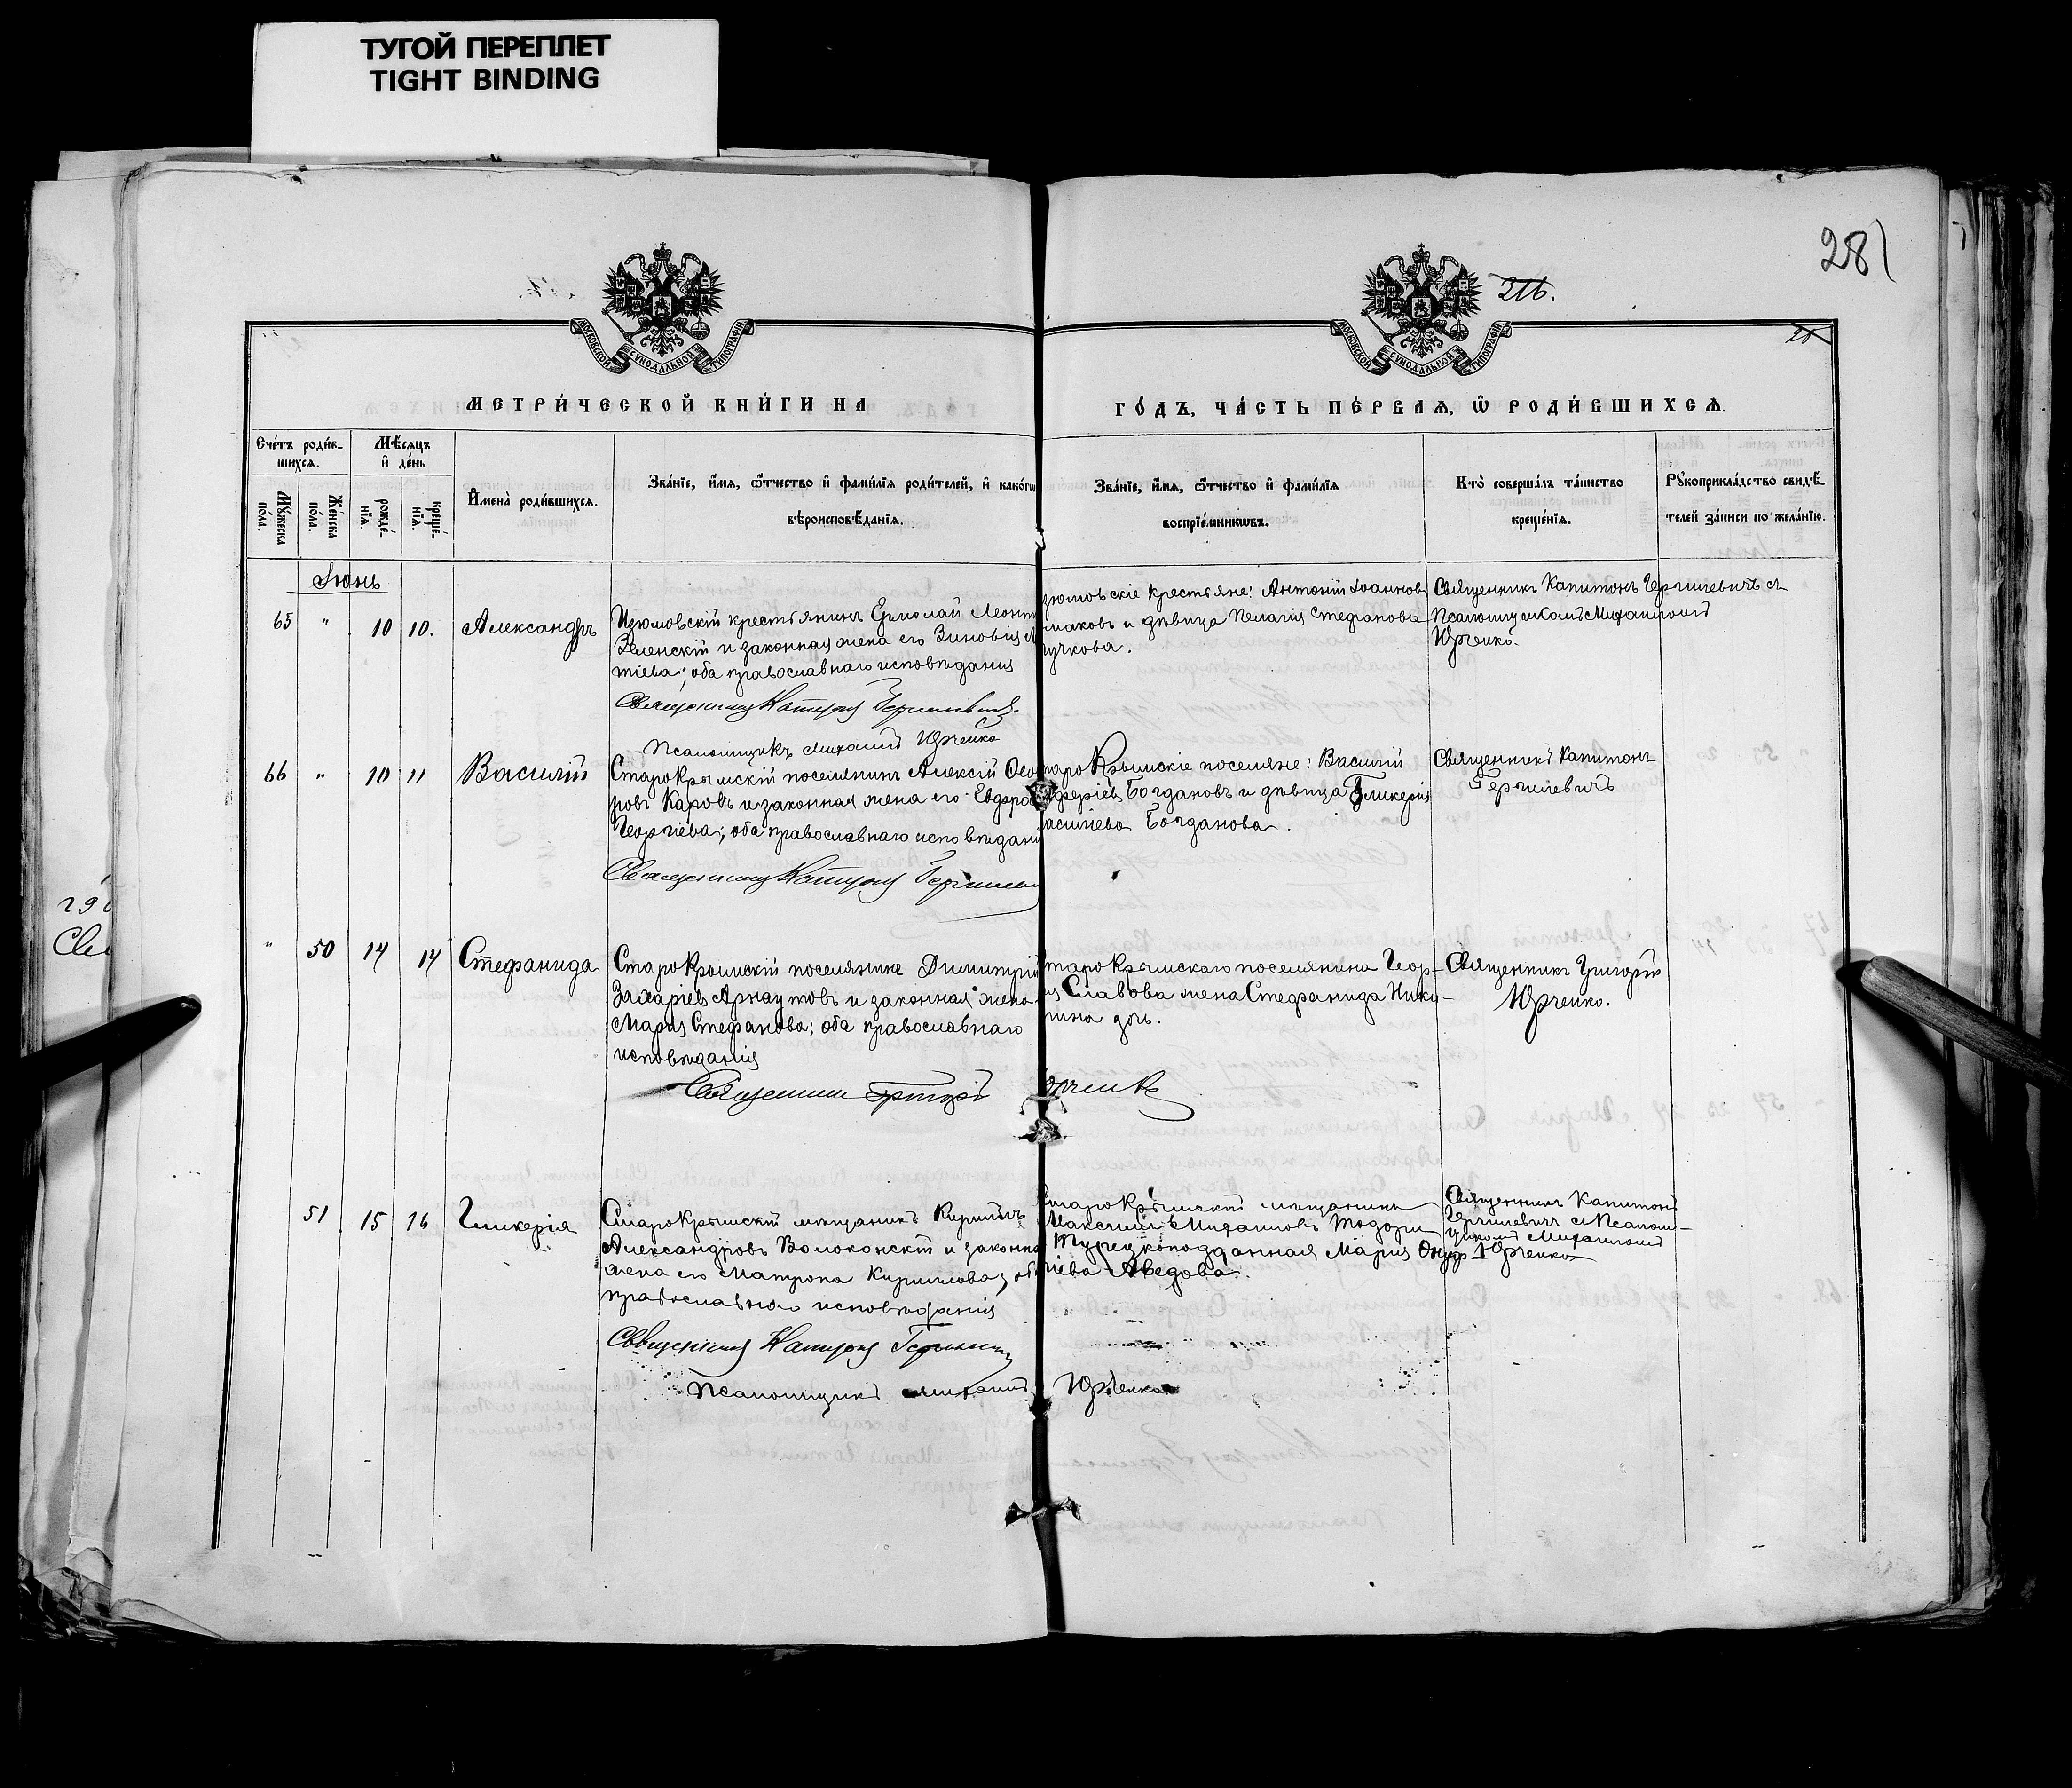 ТУГОЙ ПЕРЕПЛЕТ
TIGHT BINDING
281
216.
МОСКОВСКОЙ СѴНОДАЛЬНОЙ ТИПОГРАФІИ
МОСКОВСКОЙ СѴНОДАЛЬНОЙ ТИПОГРАФІИ
МЕТРИ́ЧЕСКОЙ КНИ́ГИ НА
ГО́ДЪ, ЧА́СТЬ ПЕ́РВАѦ, Ѽ РОДИ́ВШИХСѦ.
Сче́тъ роди́в-
шихсѧ.
Мѣ́сѧцъ
и҆ де́нь
Мꙋ́жеска
по́ла.
Же́нска
по́ла.
рожде́-
нїѧ.
креще́-
нїѧ.
И҆мена̀ роди́вшихсѧ.
Зва́нїе, и҆́мѧ, ѻ҆́тчество и҆ фамѝлїѧ роди́телей, и҆ како́гѡ
вѣроисповѣ́данїѧ.
Зва́нїе, и҆́мѧ, ѻ҆́тчество и҆ фами́лїѧ
воспрїе́мникѡвъ.
Кто̀ соверша́лъ та́инство
креще́нїѧ.
Рꙋкоприкла́дство свидѣ́-
телей за́писи по жела́нїю.
Іюнь
65 " 10 10. Александръ
Изюмовскій крестьянинъ Ермолай Леонт
Зеленскій и законная жена его Зиновія
тіева; оба православнаго исповѣданія
Священникъ Капитонъ Гергилевичъ.
Псаломщикъ Михаилъ Юрченко
зюмовскіе крестьяне: Антоній Іоанновъ
маковъ и дѣвица Пелагія Стефанова
чукова.
Священникъ Капитонъ Гергилевичъ съ
Псаломщикомъ Михаиломъ
Юрченко.
66 " 10 11 Василій
Старокрымскій поселянинъ Алексій Ѳео
ровъ Каровъ и законная жена его Евфро
Георгіева; оба православнаго исповѣдані
Священникъ Капитонъ Гергилеви
таро Крымскіе поселяне: Василій
Богдановъ и дѣвица Гликерія
асильева Богданова.
Священникъ Капитонъ
Гергилевичъ
" 50 14 14 Стефанида
Старокрымскій поселянинъ Димитрій
Захаріевъ Арнаутовъ и законная жена
Марія Стефанова; оба православнаго
исповѣданія
Священникъ Григорій Юрченко
таро Крымскаго поселянина Геор-
ія Славова жена Стефанида Ники-
тина дочь.
Священникъ Григорій
Юрченко.
51 15 16 Гликерія
Старокрымскій мѣщанинъ Кириллъ
Александровъ Волоконскій и законна
жена его Матрона Кириллова; оба
православнаго исповѣданія
Священникъ Капитонъ Гергилевичъ
Псаломщикъ Михаилъ Юрченко
Старокрымскій мѣщанинъ
Максимъ Михаиловъ Тодори
Турецкоподданная Марія Онуф
ріева Аведова.
Священникъ Капитонъ
Гергилевичъ съ Псалом-
щикомъ Михаиломъ
Юрченко